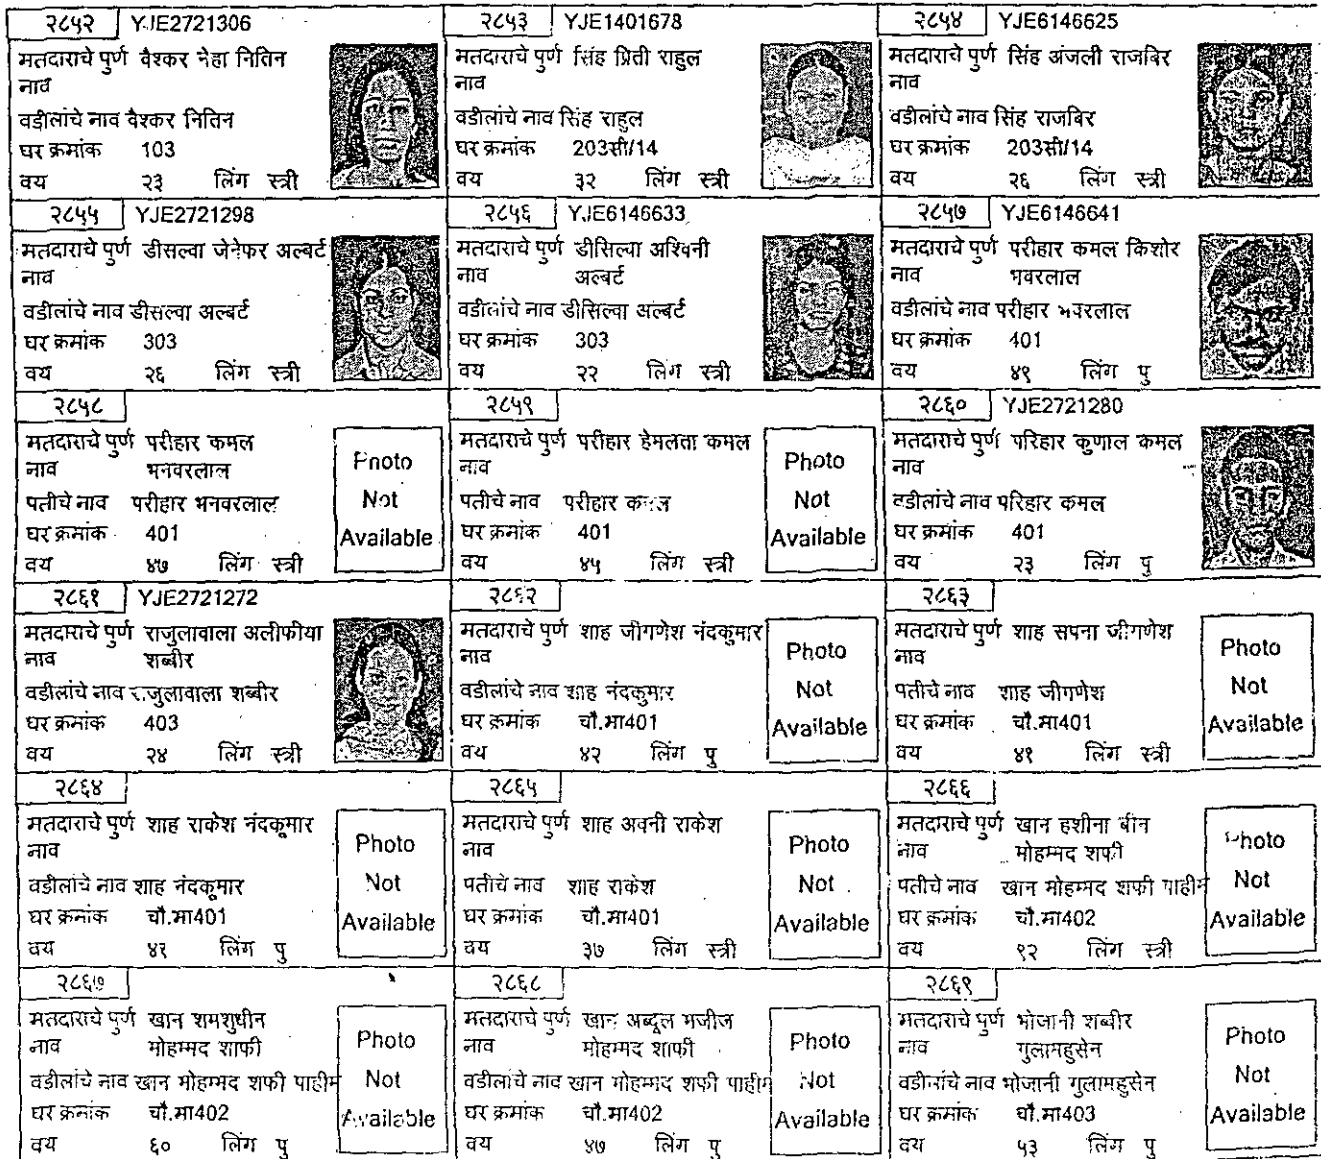 २८५२ YJE2721306
मतदाराचे पुर्ण वैश्कर नेहा नितिन
नाव
वडीलांचे नाव वैश्कर नितिन
घर क्रमांक 103
वय २३ लिंग स्त्री
२८५३ YJE1401678
मतदाराचे पुर्ण सिंह प्रिती राहुल
नाव
वडीलांचे नाव सिंह राहुल
घर क्रमांक 203सी/14
वय ३२ लिंग स्त्री
२८५४ YJE6146625
मतदाराचे पुर्ण सिंह अंजली राजबिर
नाव
वडीलांचे नाव सिंह राजबिर
घर क्रमांक 203सी/14
वय २६ लिंग स्त्री
२८५५ YJE2721298
मतदाराचे पुर्ण डीसल्वा जेनेफर अल्बर्ट
नाव
वडीलांचे नाव डीसल्वा अल्बर्ट
घर क्रमांक 303
वय २६ लिंग स्त्री
२८५६ YJE6146633
मतदाराचे पुर्ण डीसिल्वा अश्विनी
नाव अल्बर्ट
वडीलांचे नाव डीसिल्वा अल्बर्ट
घर क्रमांक 303
वय २२ लिंग स्त्री
२८५७ YJE6146641
मतदाराचे पुर्ण परीहार कमल किशोर
नाव भवरलाल
वडीलांचे नाव परीहार भवरलाल
घर क्रमांक 401
वय ४९ लिंग पु
२८५८
मतदाराचे पुर्ण परीहार कमल
नाव भनवरलाल
पतीचे नाव परीहार भनवरलाल
घर क्रमांक 401
वय ४७ लिंग स्त्री
Photo
Not
Available
२८५९
मतदाराचे पुर्ण परीहार हेमलता कमल
नाव
पतीचे नाव परीहार कमल
घर क्रमांक 401
वय ४५ लिंग स्त्री
Photo
Not
Available
२८६० YJE2721280
मतदाराचे पुर्ण परिहार कुणाल कमल
नाव
वडीलांचे नाव परिहार कमल
घर क्रमांक 401
वय २३ लिंग पु
२८६१ YJE2721272
मतदाराचे पुर्ण राजुलावाला अलीफीया
नाव शब्बीर
वडीलांचे नाव राजुलावाला शब्बीर
घर क्रमांक 403
वय २४ लिंग स्त्री
२८६२
मतदाराचे पुर्ण शाह जीगणेश नंदकुमार
नाव
वडीलांचे नाव शाह नंदकुमार
घर क्रमांक चौ.मा401
वय ४२ लिंग पु
Photo
Not
Available
२८६३
मतदाराचे पुर्ण शाह सपना जीगणेश
नाव
पतीचे नाव शाह जीगणेश
घर क्रमांक चौ.मा401
वय ४१ लिंग स्त्री
Photo
Not
Available
२८६४
मतदाराचे पुर्ण शाह राकेश नंदकूमार
नाव
वडीलांचे नाव शाह नंदकूमार
घर क्रमांक चौ.मा401
वय ४१ लिंग पु
Photo
Not
Available
२८६५
मतदाराचे पुर्ण शाह अवनी राकेश
नाव
पतीचे नाव शाह राकेश
घर क्रमांक चौ.मा401
वय ३७ लिंग स्त्री
Photo
Not
Available
२८६६
मतदाराचे पुर्ण खान हशीना बीन
नाव मोहम्मद शफी
पतीचे नाव खान मोहम्मद शफी पाहीम
घर क्रमांक चौ.मा402
वय ९२ लिंग स्त्री
Photo
Not
Available
२८६७
मतदाराचे पुर्ण खान शमशुधीन
नाव मोहम्मद शाफी
वडीलांचे नाव खान मोहम्मद शफी पाहीम
घर क्रमांक चौ.मा402
वय ६० लिंग पु
Photo
Not
Available
२८६८
मतदाराचे पुर्ण खान अब्दूल मजीज
नाव मोहम्मद शाफी
वडीलांचे नाव खान मोहम्मद शफी पाहीम
घर क्रमांक चौ.मा402
वय ४७ लिंग पु
Photo
Not
Available
२८६९
मतदाराचे पुर्ण भोजानी शब्बीर
नाव गुलामहुसेन
वडीलांचे नाव भोजानी गुलामहुसेन
घर क्रमांक चौ.मा403
वय ५३ लिंग पु
Photo
Not
Available